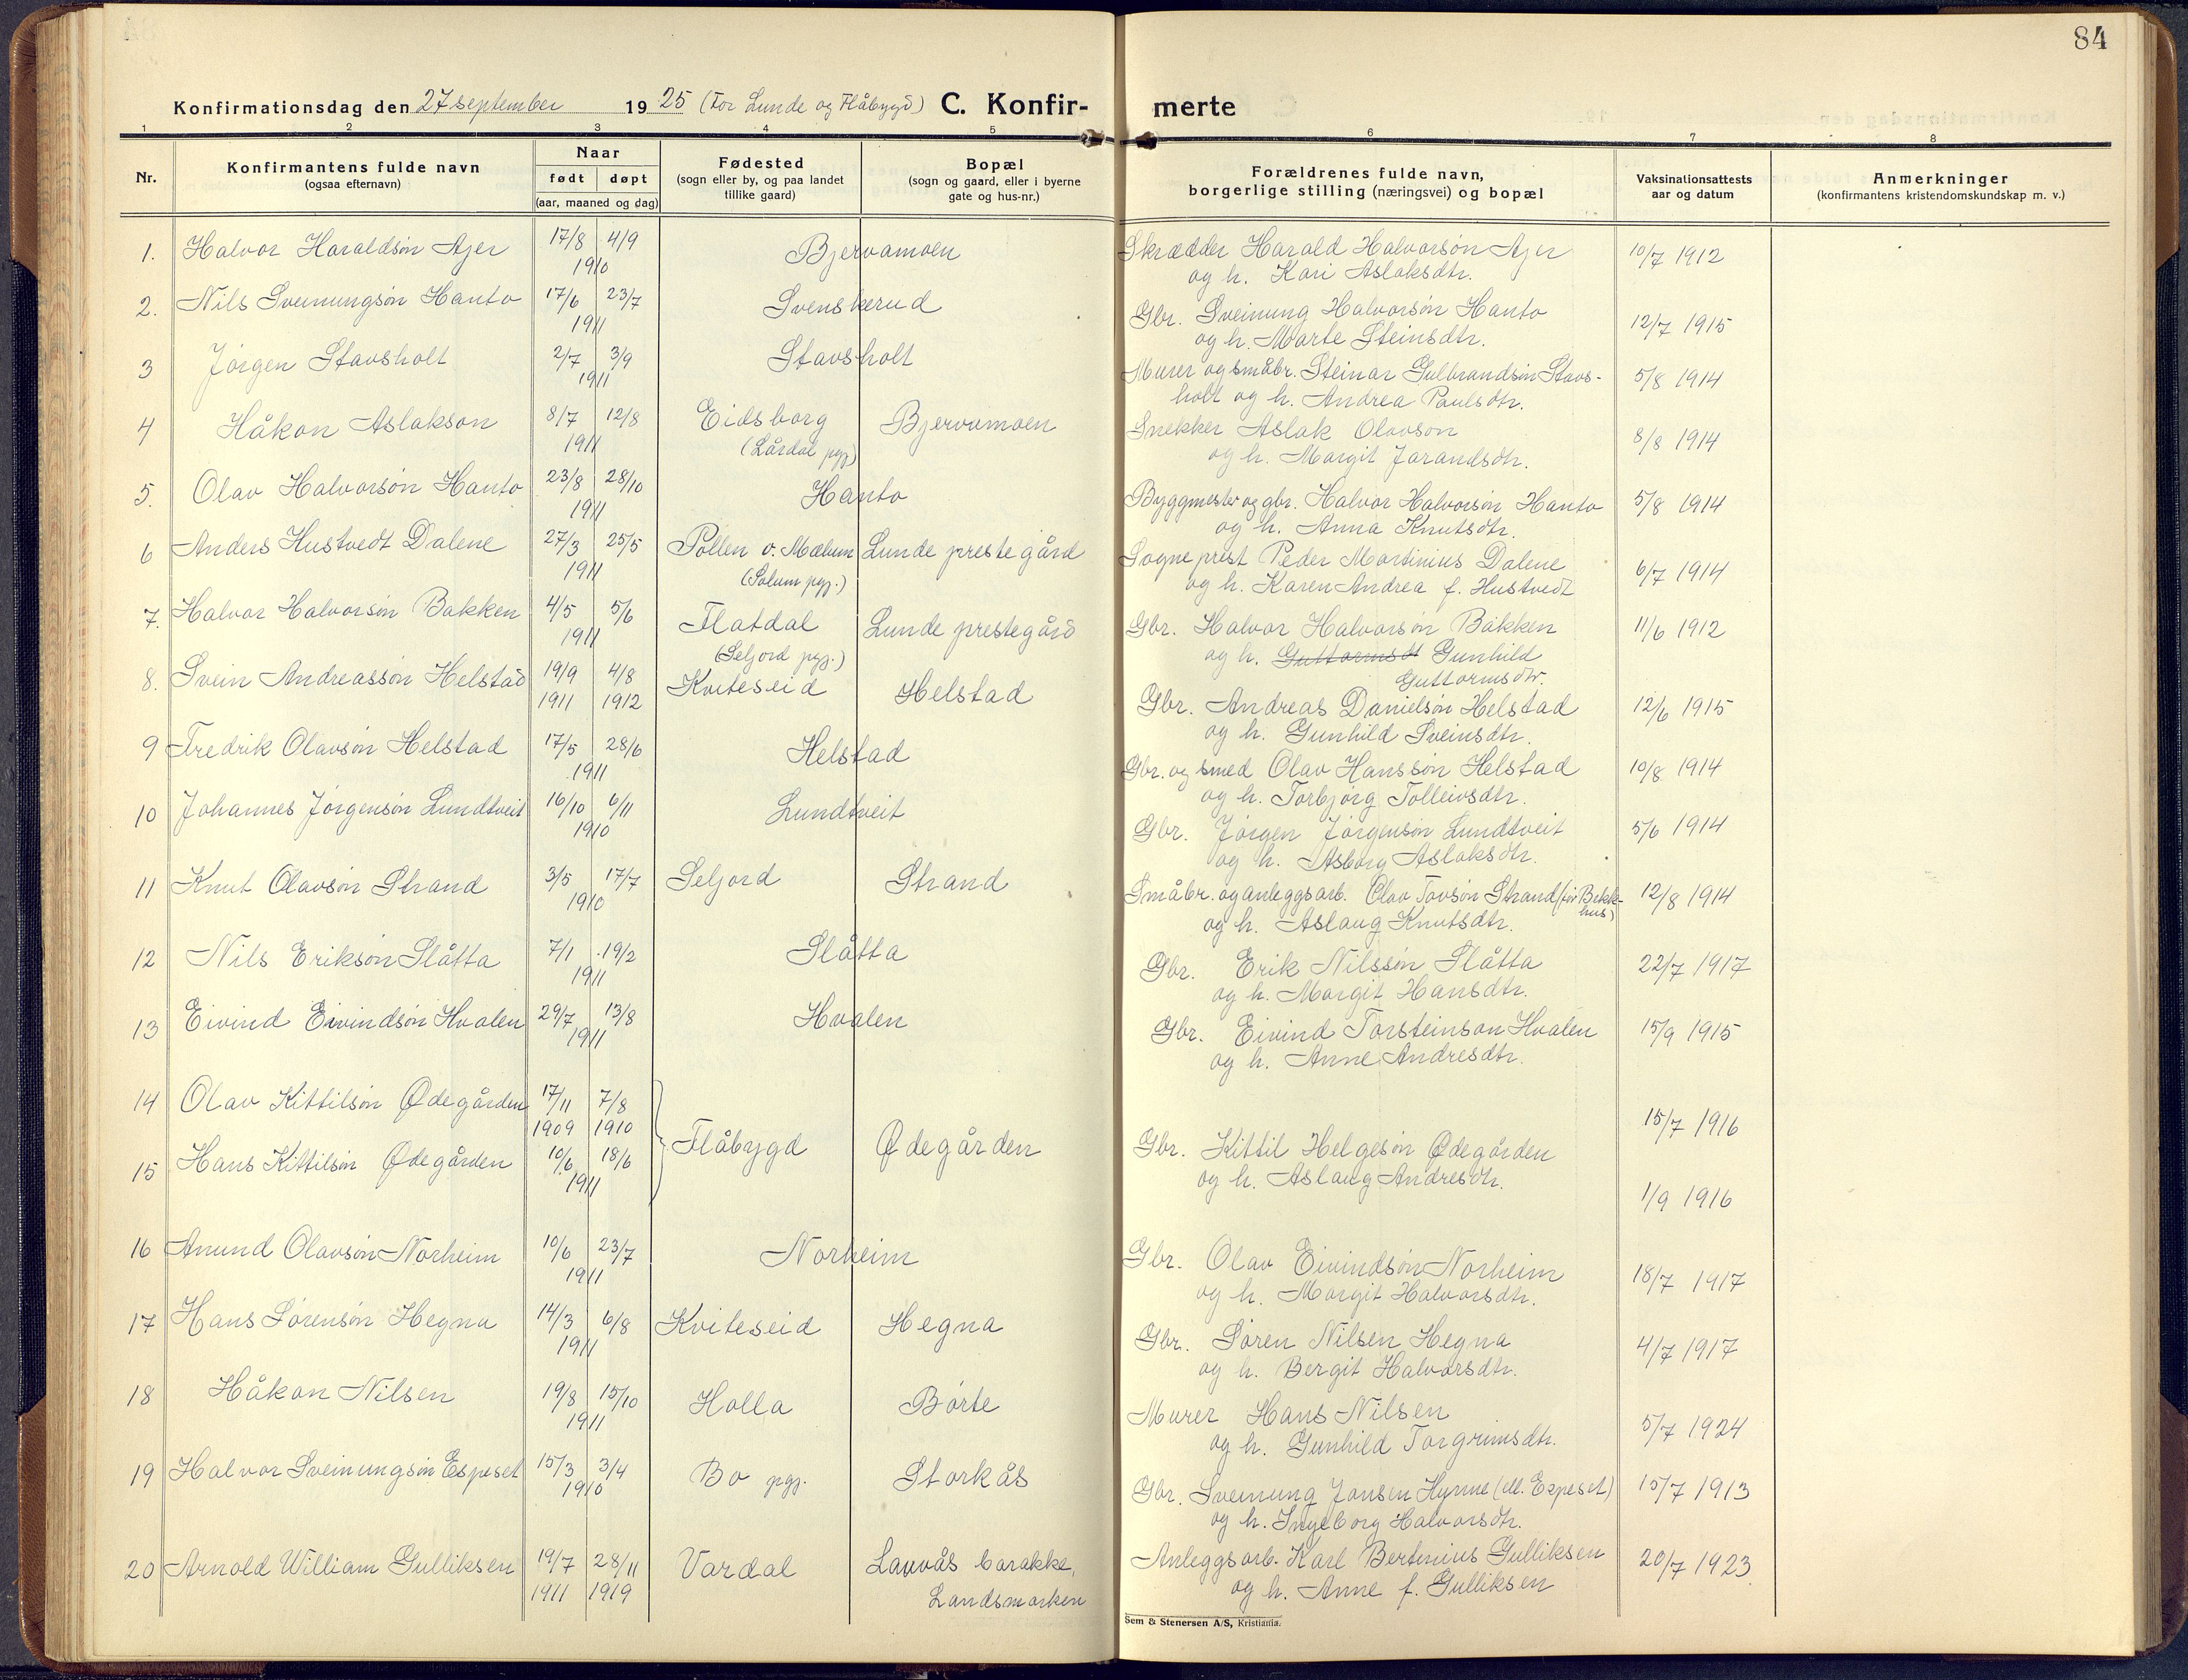 84
Konfirmationsdag den 27 september 1925 (for Lunde og Flåbygd) C. Konfir- merte
1 2 3 4 5 6 7 8
Nr.
Konfirmantens fulde navn
(ogsaa efternavn)
Naar
født døpt
(aar, maaned og dag)
Fødested
(sogn eller by, og paa landet
tillike gaard)
Bopæl
(sogn og gaard, eller i byerne
gate og hus-nr.)
Forældrenes fulde navn,
borgerlige stilling (næringsvei) og bopæl
Vaksinationsattests
aar og datum
Anmerkninger
(konfirmantens kristendomskundskap m. v.)
1. Halvor Haraldsön Ajer 17/8 4/9 Bjervamoen Skrædder Harald Halvorsön Ajer 10/7 1912
1910 og h. Kari Aslaksdtr.
2. Nils Sveinungsön Hanto 17/6 23/7 Svenskerud Gbr. Sveinung Halvorsön Hanto 12/7 1915
1911 og h. Marte Steinsdtr.
3 Jörgen Stavsholt 2/7 3/9 Stavsholt Murer og småbr. Steinar Gulbrandsön Stavs- 5/8 1914
1911 holt og h. Andrea Paulsdtr.
4 Håkon Aslakson 8/7 12/8 Eidsborg Bjervamoen Snekker Aslak Olavson 8/8 1914
1911 (Lårdal pgj) og h. Margit Jorandsdtr.
5. Olav Halvorsön Hanto 23/8 28/10 Hanto Byggmester og gbr. Halvor Halvorsön Hanto 5/8 1914
1911 og h. Anna Knutsdtr.
6 Anders Hustvedt Dalene 27/3 25/5 Pollen v. Mælum Lunde prestegård Sogneprest Peder Martinius Dalene 6/7 1914
1911 (Solum pgj.) og h. Karen Andrea f. Hustvedt
7. Halvor Halvorsön Bakken 4/5 5/6 Flatdal Lunde prestegård Gbr. Halvor Halvorsön Bakken 11/6 1912
1911 (Seljord pgj.) og h. Guttormsdt Gunhild
Guttormsdtr.
8. Svein Andreassön Helstad 19/9 4/8 Kviteseid Helstad Gbr. Andreas Danielsön Helstad 12/6 1915
1911 1912 og h. Gunhild Sveinsdtr.
9 Fredrik Olavsön Helstad 17/5 28/6 Helstad Gbr. og smed Olav Hanssön Helstad 10/8 1914
1911 og h. Torbjörg Tolleivsdtr.
10 Johannes Jörgensön Lundtveit 16/10 6/11 Lundtveit Gbr. Jörgen Jörgensön Lundtveit 5/6 1914
1910 og h. Asborg Aslaksdtr.
11 Knut Olavsön Strand 3/5 17/7 Seljord Strand Småbr. og anleggsarb. Olav Tovsön Strand (før Bekk- 12/8 1914
1910 og h. Aslaug Knutsdtr. hus)
12 Nils Eriksön Slåtta 7/1 19/2 Slåtta Gbr. Erik Nilssön Slåtta 22/7 1917
1911 og h. Margit Hansdtr.
13 Eivind Eivindsön Hvalen 29/7 13/8 Hvalen Gbr. Eivind Torsteinson Hvalen 15/9 1915
1911 og h. Anne Andresdtr.
14 Olav Kittilsön Ødegården 17/11 7/8 15/7 1916
1909 1910 Flåbygd Ødegården Gbr. Kittil Helgesön Ødegården
15 Hans Kittilsön Ødegården 10/6 18/6 og h. Aslaug Andresdtr.
1911 1/9 1916
16 Amund Olavsön Norheim 10/6 23/7 Norheim Gbr. Olav Eivindsön Norheim 18/7 1917
1911 og h. Margit Halvorsdtr.
17 Hans Sörensön Hegna 14/3 6/8 Kviteseid Hegna Gbr. Sören Nilsen Hegna 4/7 1917
1911 og h. Bergit Halvorsdtr.
18 Håkon Nilsen 19/8 15/10 Holla Börte Murer Hans Nilsen 5/7 1924
1911 og h. Gunhild Torgrimsdtr.
19 Halvor Sveinungsön Espeset 15/3 3/4 Bo pgj. Storkås Gbr. Sveinung Jonsen Hynne (ell. Espeset) 15/7 1913
1910 og h. Ingeborg Halvorsdtr.
20 Arnold William Gulliksen 19/7 28/11 Vardal Lauvås barakke, Anleggsarb. Karl Bertinius Gulliksen 20/7 1923
1911 1919 Landsmarken og h. Anne f. Gulliksen
Sem & Stenersen A/S, Kristiania.